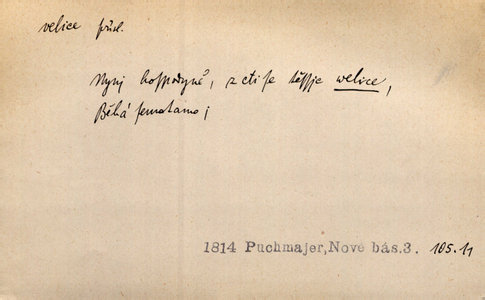 velice přísl.
Nyní hospodyně, z cti se těssje welice,
Běhá semotamo;
1814 Puchmajer, Nové bás.3. 105.11